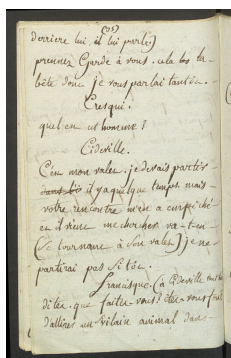 (95)
derriere lui, et lui parle)
prennez Garde à vous. cela la
bête dont je vous parlai tantôt.
Cresqui.
quel est cet homme ?
Cideville.
C'est mon valet. je devais partir
il y a quelque temps, mais
votre rencontre m'en a empêché
et il vient me chercher. va-t-en
(se tournant à son valet) je ne
partirai pas si tôt.
francisque. (à Cideville
dites, que faites-vous! êtes-vous fou
d'attirer un vilain animal dans